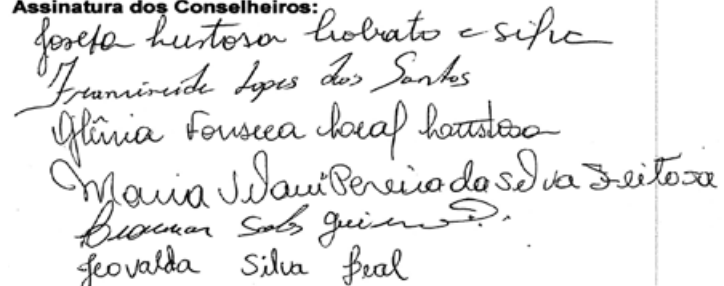 Assinatura dos Conselheiros:
Josefa Lustosa Lobato e Silva
Francineide Lopes dos Santos
Glênia Fonseca Leal Lustosa
Maria Pereira da Silva Feitosa
Sales
Jeovalda Silva Leal